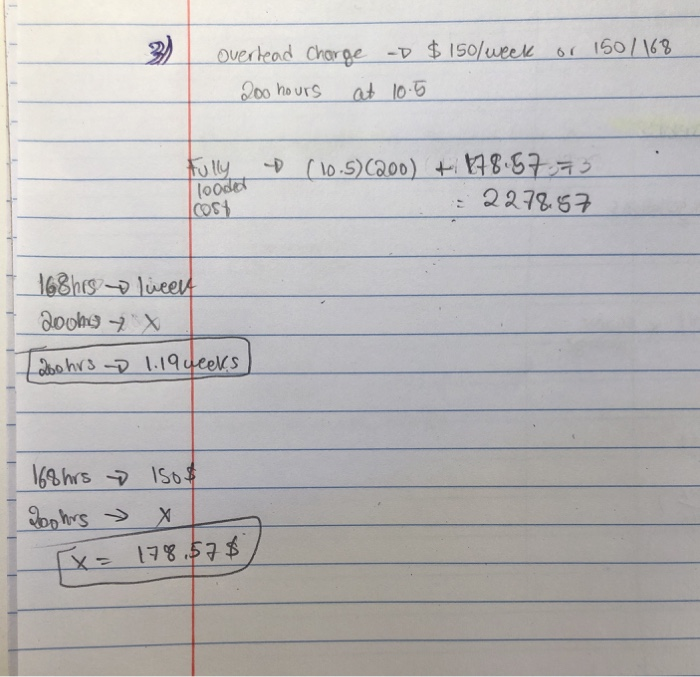 3) overhead charge → $150/week or 150/168
200 hours at 10.5
Fully → (10.5)(200) + 178.57 =
loaded
cost = 2278.57
168hrs → 1 week
200hrs → X
200hrs → 1.19 weeks
168hrs → 150$
200hrs → X
X = 178.57 $